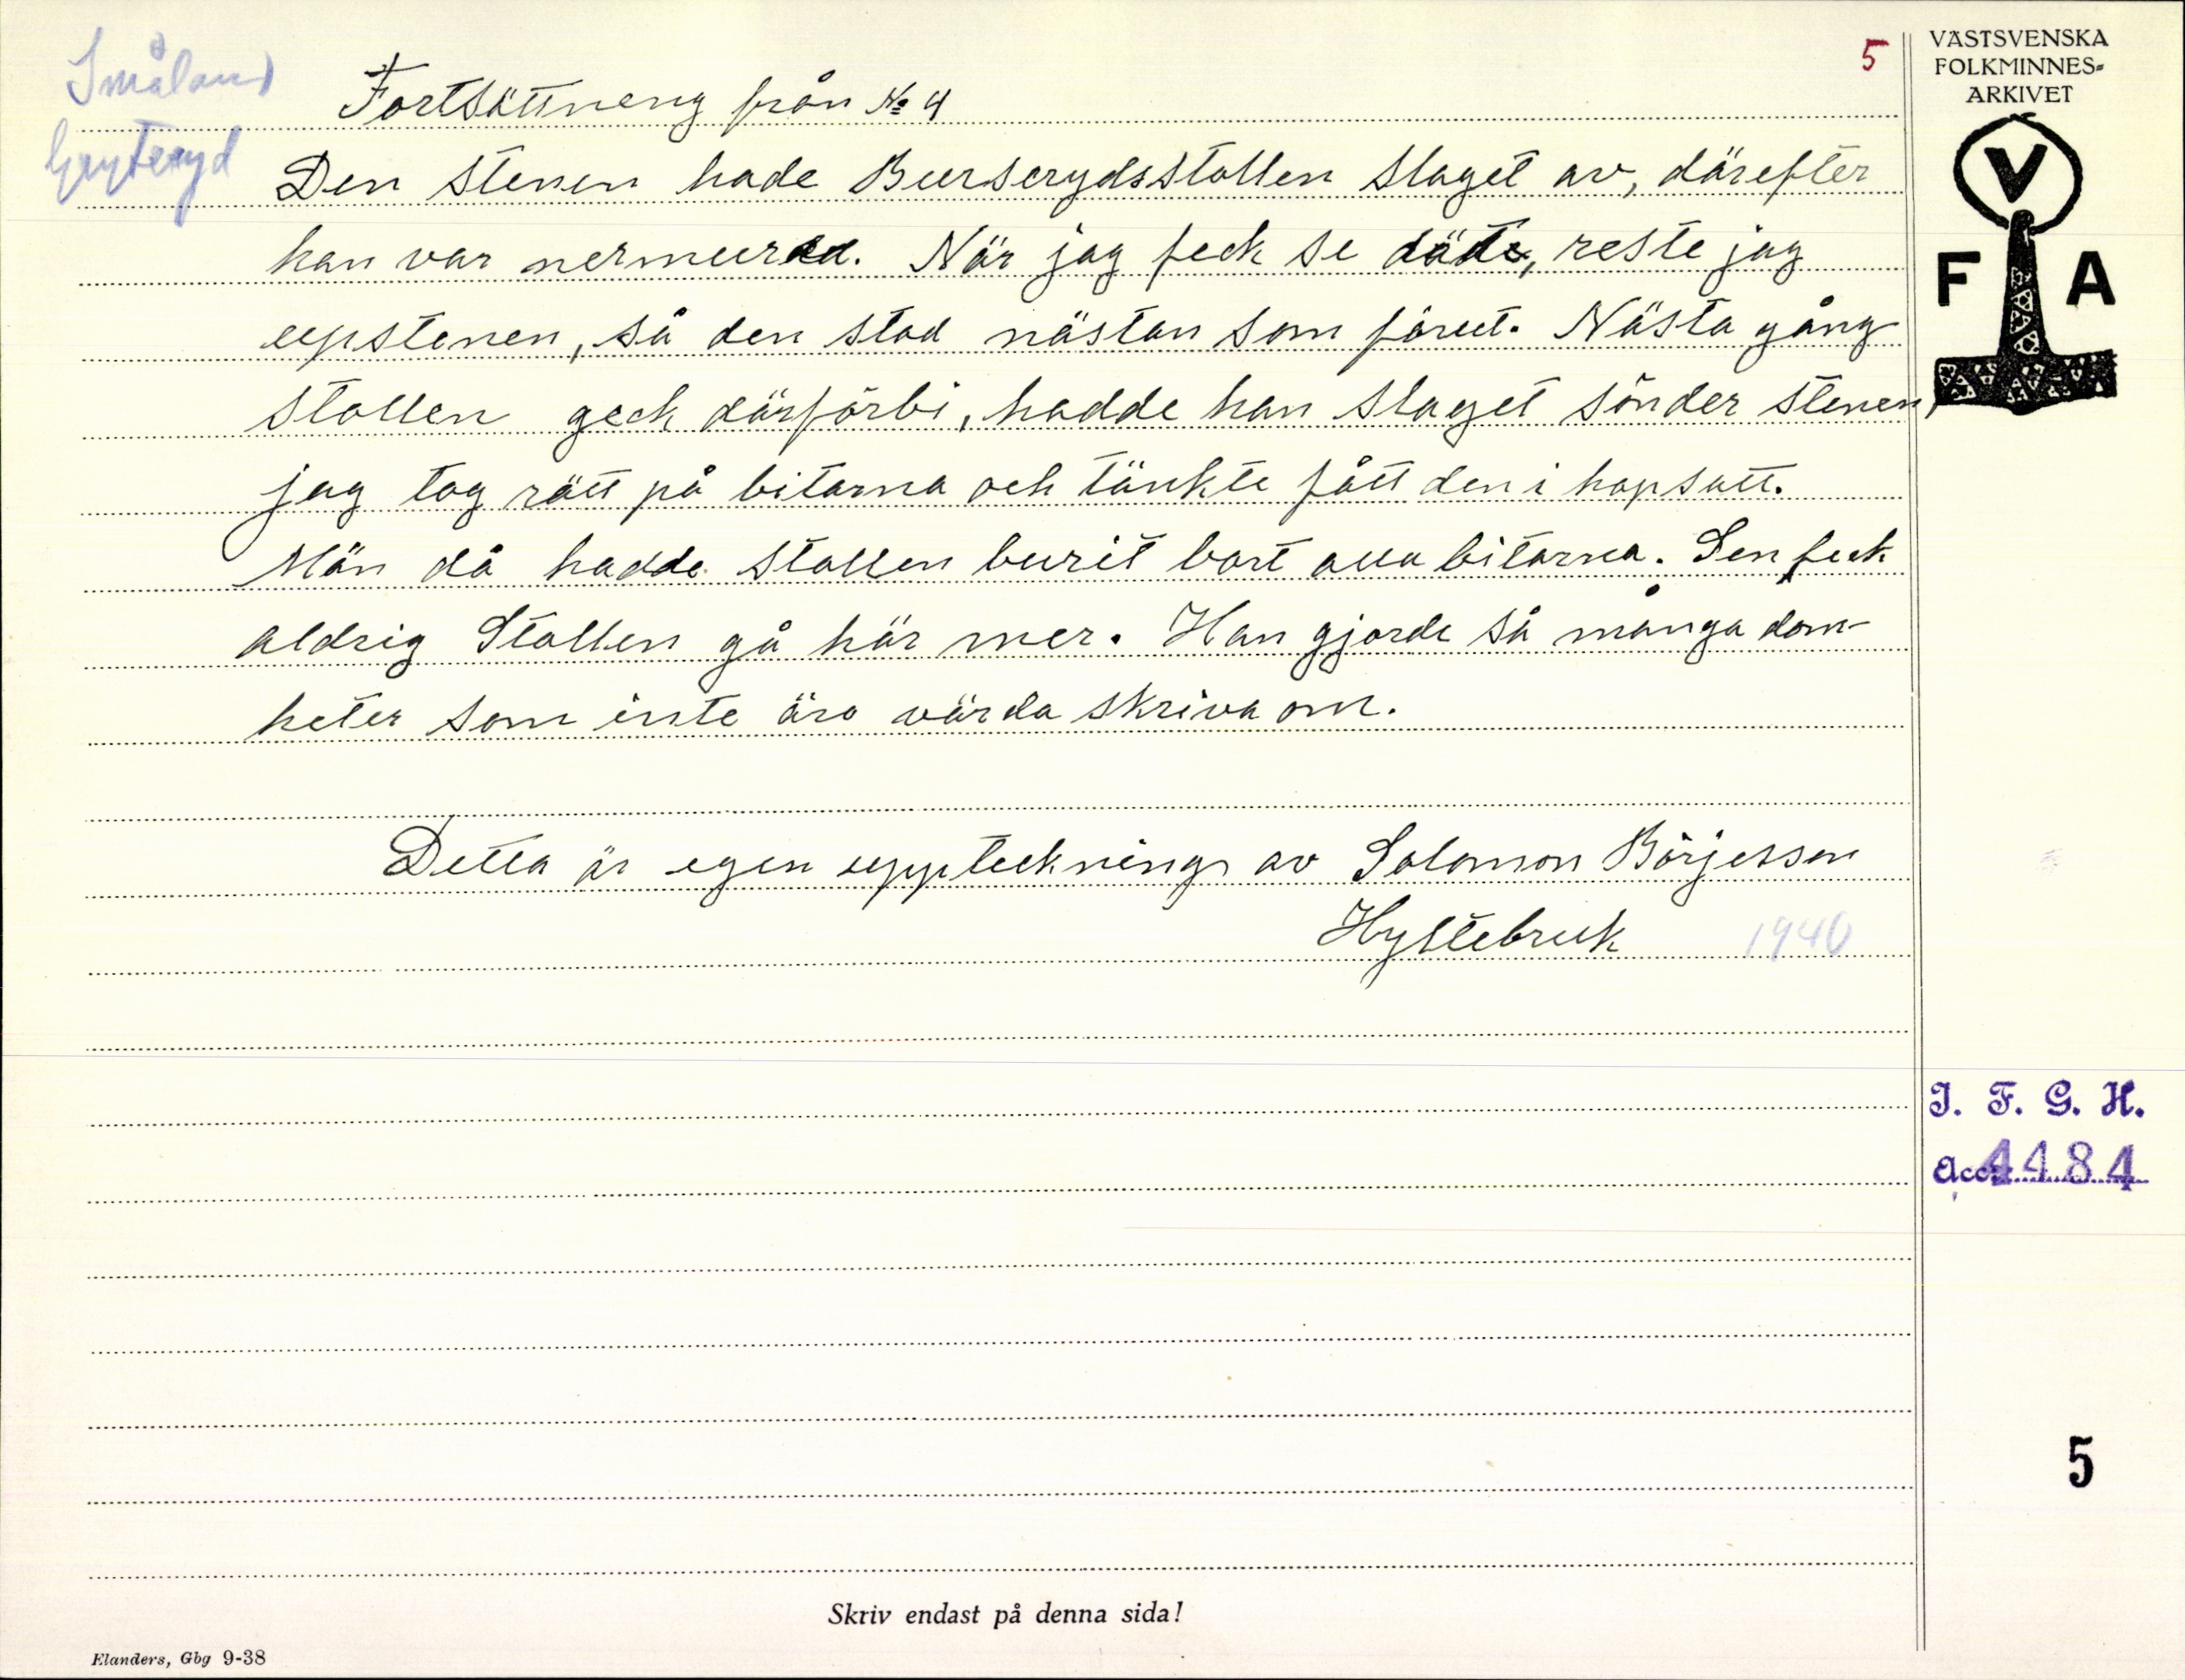 Småland
Gryteryd
5
Fortsättneng från No 4
Den stenen hade Burserydsstollen slaget av, därefter
han var nermurad. När jag feck se däte, reste jag
upstenen, så den stod nästan som förut. Nästa gång
Stollen geck därförbi, hadde han slaget sönder stenen,
jag tog rätt på bitarna och tänkte fått den i hopsatt.
Män då hadde Stollen burit bort alla bitarna. Sen feck
aldrig Stollen gå här mer. Han gjorde så många dom-
heter som inte äro värda skriva om.
Detta är egen uppteckning av Salomon Börjesson
Hyltebruk 1940
VÄSTSVENSKA
FOLKMINNES-
ARKIVET
V
F A
I. F. G. H.
Acc. 4484
5
Skriv endast på denna sida!
Elanders, Gbg 9-38